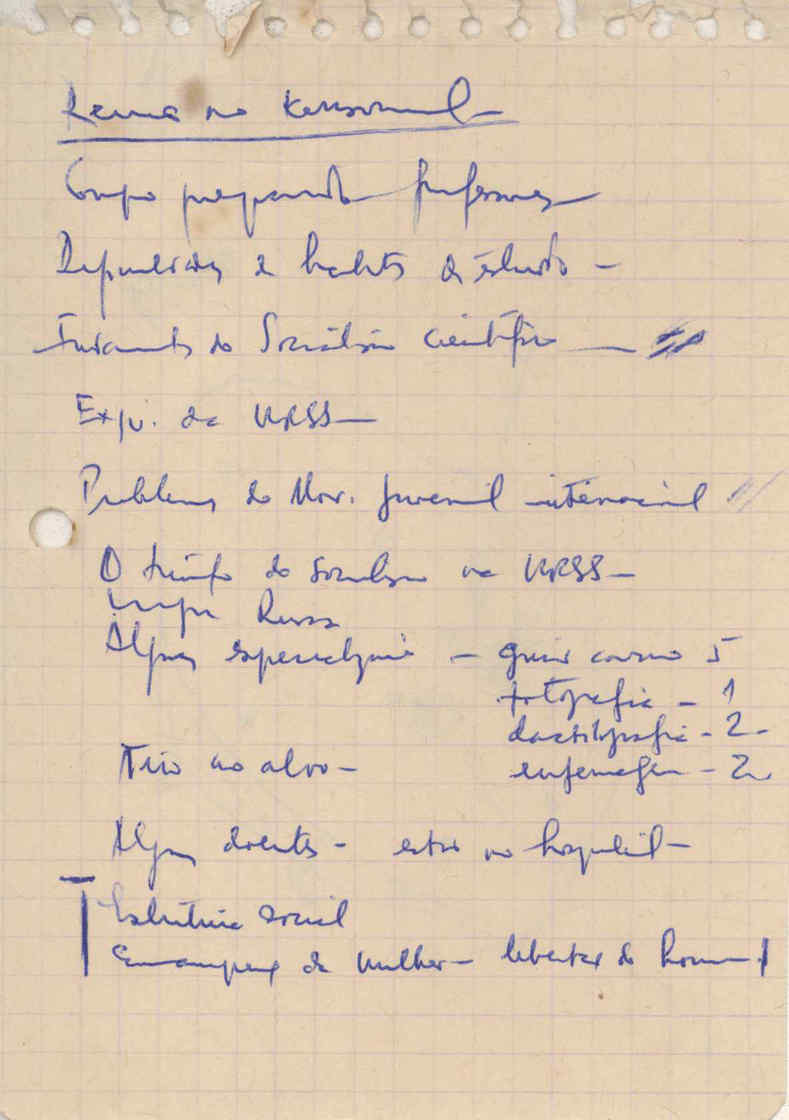 no Komsomol -
Grupo preparando professores
de estudo -
do Socialismo científico -
Exp. da URSS -
Problemas do Mov. Juvenil internacional
O triunfo do Socialismo na URSS -
Língua Russa
Algumas - 5
fotografia - 1
dactilografia - 2 -
Tiro ao alvo - enfermagem - 2
Alguns doentes - estão no hospital -
Estrutura social
Emancipação da mulher - do homem